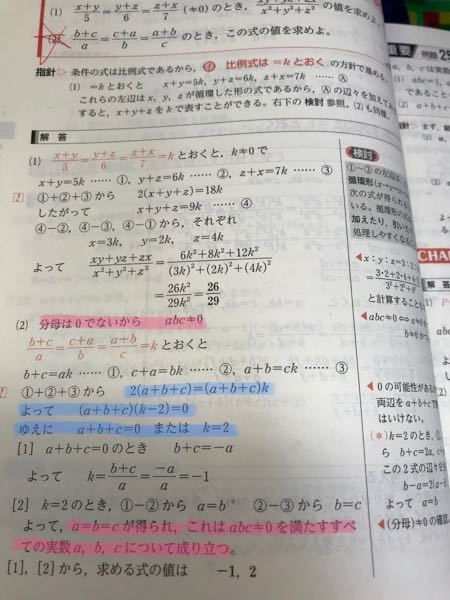 (1) x+y/5 = y+z/6 = z+x/7 (≠0) のとき,
の値を求めよ。
(2) b+c/a = c+a/b = a+b/c のとき, この式の値を求めよ。
指針▷ 条件の式は比例式であるから, 比例式は=kとおく の方針で進める。
(1) =k とおくと x+y=5k, y+z=6k, z+x=7k …… Ⓐ
これらの左辺は x, y, z が循環した形の式であるから, Ⓐの辺々を加えて
すると, x+y+z を k で表すことができる。右下の 検討 参照。(2) も同様。
解答
(1) x+y/5 = y+z/6 = z+x/7 =k とおくと, k≠0 で
x+y=5k …… ①, y+z=6k …… ②, z+x=7k …… ③
①+②+③ から 2(x+y+z)=18k
したがって x+y+z=9k …… ④
④-②, ④-③, ④-① から, それぞれ
x=3k, y=2k, z=4k
よって xy+yz+zx/x²+y²+z² = 6k²+8k²+12k²/(3k)²+(2k)²+(4k)²
= 26k²/29k² = 26/29
(2) 分母は0でないから abc≠0
b+c/a = c+a/b = a+b/c =k とおくと
b+c=ak …… ①, c+a=bk …… ②, a+b=ck …… ③
①+②+③ から 2(a+b+c)=(a+b+c)k
よって (a+b+c)(k-2)=0
ゆえに a+b+c=0 または k=2
[1] a+b+c=0 のとき b+c=-a
よって k= b+c/a = -a/a =-1
[2] k=2 のとき, ①-② から a=b(*) ②-③ から b=c
よって, a=b=c が得られ, これは abc≠0 を満たすすべ
ての実数 a, b, c について成り立つ。
[1], [2] から, 求める式の値は -1, 2
検討
①~③の左辺は
循環形
次の式が得られ
る。循環形の式
加えたり, 引いた
処理しやすくなるこ
◀ x:y:z=3:2:
と計算すること
◀ abc≠0 ⇔ a≠0
◀ 0の可能性がある
両辺を a+b+c で
はいけない。
(*) k=2のとき,
ら b+c=2a, c+
この2式の辺々を
b-a=2(a-b)
よって a=b
◀ (分母)≠0 の確認
重要 例題 25
CHA
解答